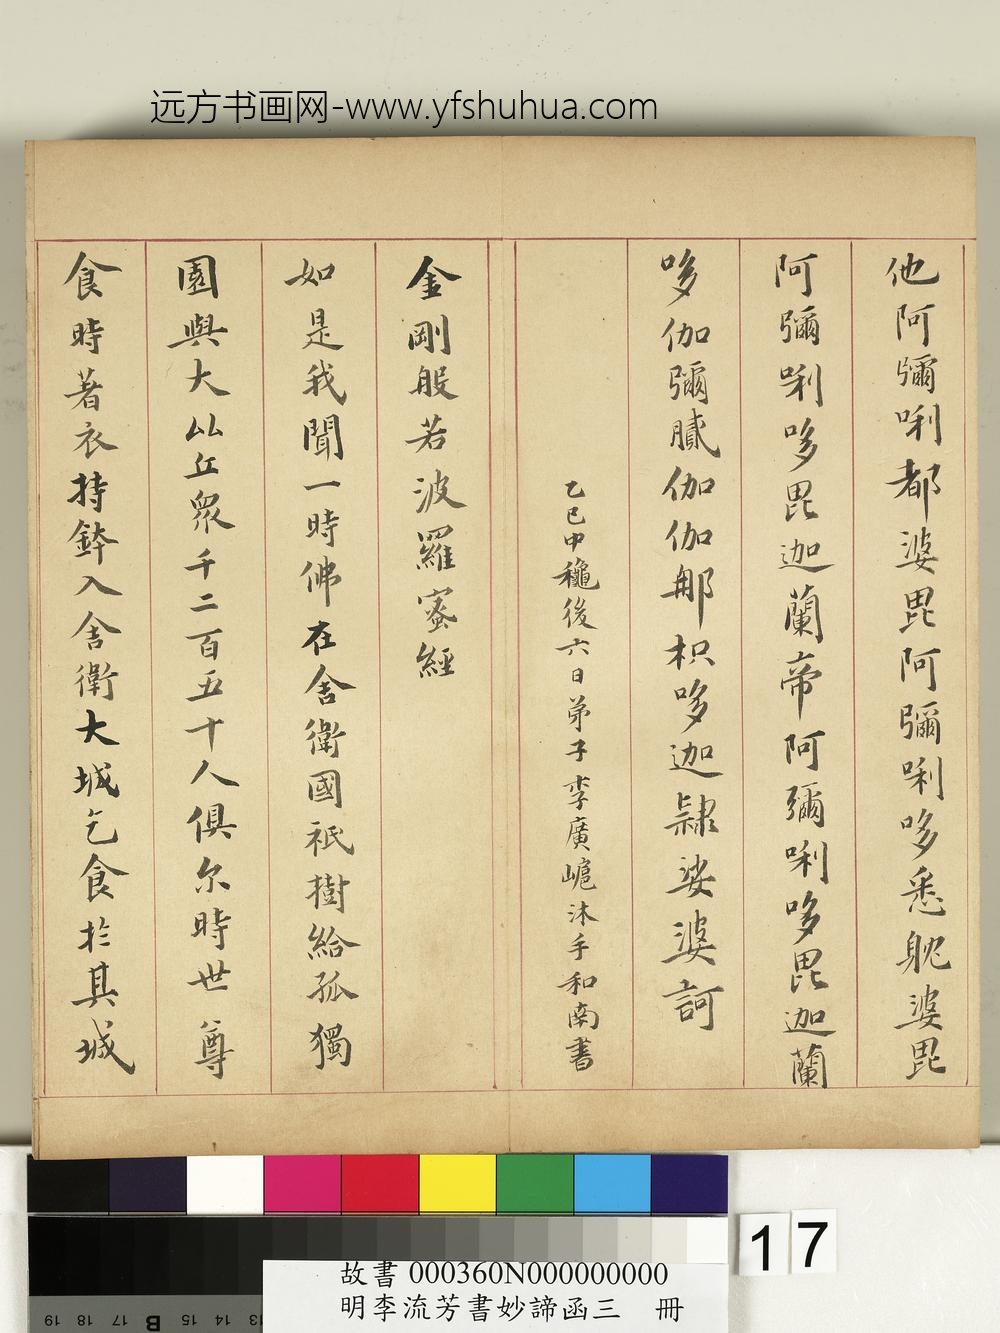 远方书画网-www.yfshuhua.com
他阿彌唎都婆毘阿彌唎哆悉躭婆毘
阿彌唎哆毘迦蘭帝阿彌唎哆毘迦蘭
哆伽彌膩伽伽那枳哆迦隸娑婆訶
乙巳中龝後六日弟子李廣㟴沐手和南書
金剛般若波羅蜜經
如是我聞一時佛在舍衛國祇樹給孤獨
園與大比丘眾千二百五十人俱尔時世尊
食時著衣持鉢入舍衛大城乞食於其城
17
故書 000360N000000000
明李流芳書妙諦函三 冊
19 18 17 B 15 14 13